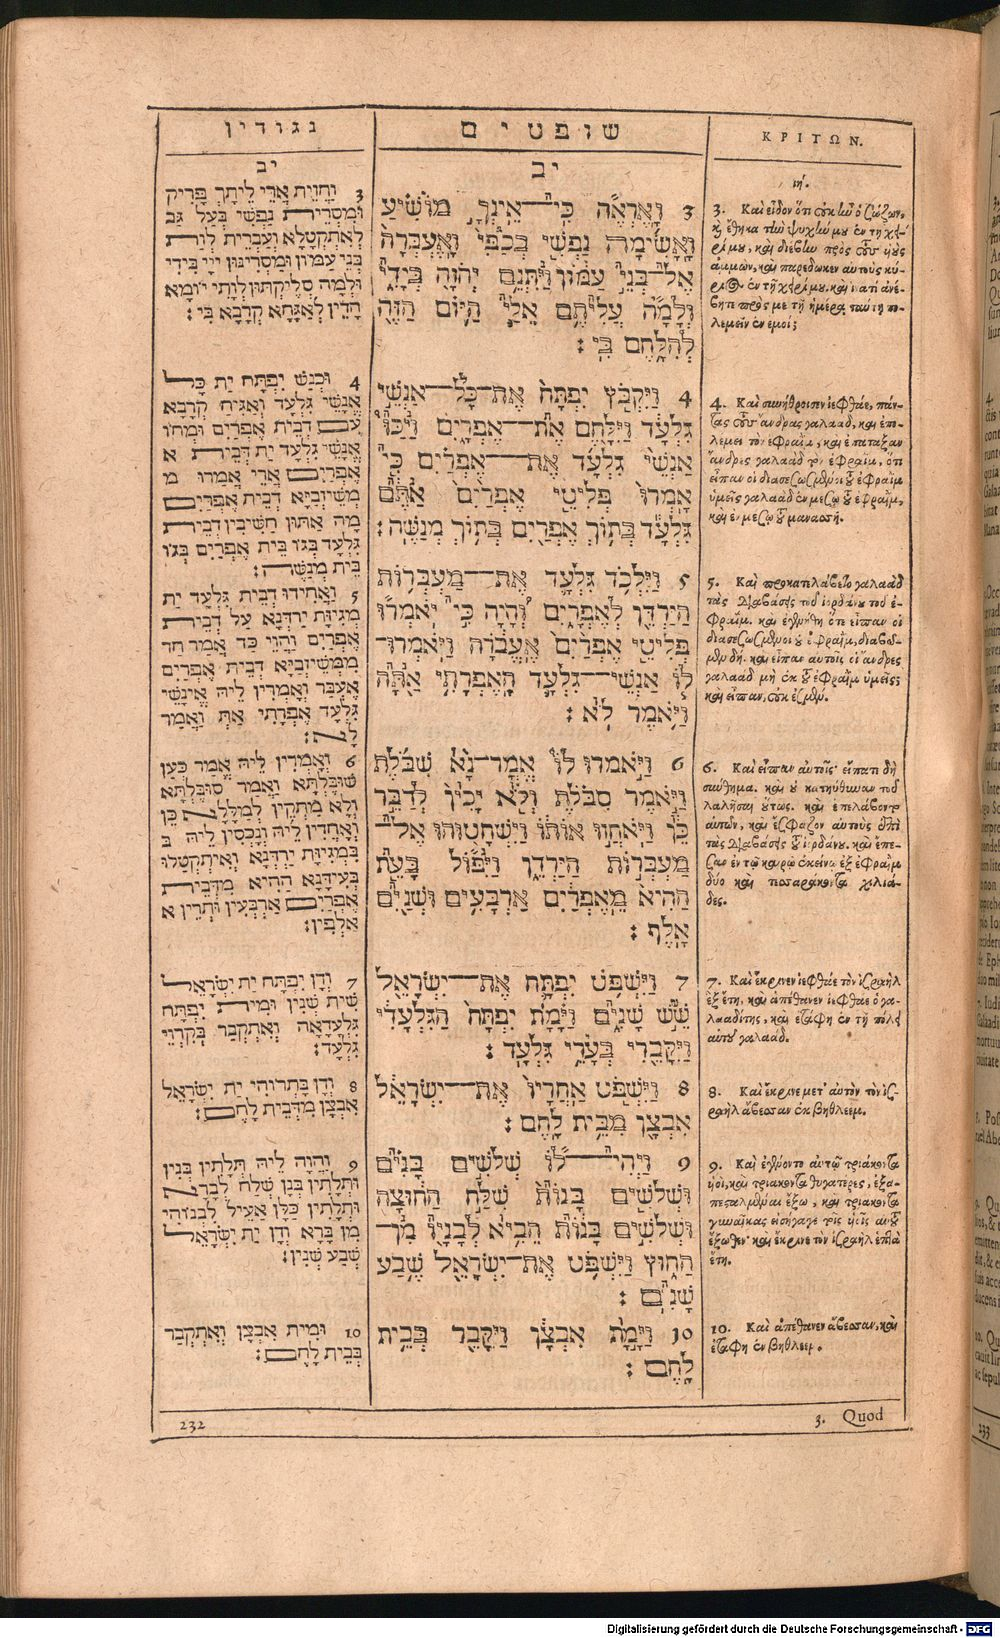 נגודין
יב
3 וַחֲזֵית אֲרֵי לֵיתָךְ פָּרִיק
וּמְסָרִית נַפְשִׁי בְּעַל גַּב
לְאִתְקְטָלָא וַעֲבָרִית לְוָת
בְּנֵי עַמּוֹן וּמְסָרִינוּן יְיָ בִּידִי
וּלְמָה סְלִיקְתּוּן לְוָתִי יוֹמָא
הָדֵין לְאַגָּחָא קְרָבָא בִּי׃
4 וּכְנַשׁ יִפְתָּח יַת כָּל
אֱנָשֵׁי גִּלְעָד וְאַגִּיחַ קְרָבָא
עִם דְּבֵית אֶפְרַיִם וּמְחוֹ
אֱנָשֵׁי גִּלְעָד יַת דְּבֵית א
אֶפְרַיִם אֲרֵי אֲמָרוּ מ
מְשֵׁיזְבַיָּא דְבֵית אֶפְרַיִם
מָה אַתּוּן חֲשִׁיבִין דְּבֵית
גִּלְעָד בְּגוֹ בֵּית אֶפְרַיִם בְּגוֹ
בֵּית מְנַשֶּׁה׃
5 וַאֲחִידוּ דְבֵית גִּלְעָד יַת
מְגִיזָת יַרְדְּנָא עַל דְּבֵית
אֶפְרַיִם וַהֲוֵי כַּד אֲמַר חַד
מִמְּשֵׁיזְבַיָּא דְבֵית אֶפְרַיִם
אֶעְבַּר וְאָמְרִין לֵיהּ אֱינָשֵׁי
גִּלְעָד אֶפְרָתִי אַתְּ וַאֲמַר
לָא׃
6 וְאָמְרִין לֵיהּ אֱמַר כְּעַן
שׁוּבַּלְתָּא וַאֲמַר סוּבַּלְתָּא
וְלָא מַתְקֵין לְמַלָּלָא כֵּן
וְאָחֲדִין לֵיהּ וְנָכְסִין לֵיהּ ב
בִּמְגִיזָת יַרְדְּנָא וְאִיתְקְטָלוּ
בְּעִידָּנָא הַהִיא מִדְּבֵית
אֶפְרַיִם אַרְבְּעִין וּתְרֵין א
אַלְפִין׃
7 וְדָן יִפְתָּח יַת יִשְׂרָאֵל
שִׁית שְׁנִין וּמִית יִפְתָּח
גִּלְעָדָאָה וְאִתְקְבַר בְּקִרְוֵי
גִּלְעָד׃
8 וְדָן בָּתְרוֹהִי יַת יִשְׂרָאֵל
אִבְצָן מִדְּבֵית לָחֶם׃
9 וַהֲוָה לֵיהּ תְּלָתִין בְּנִין
וּתְלָתִין בְּנָן שְׁלַח לְבָרָא
וּתְלָתִין כַּלָּן אַעֵיל לִבְנוֹהִי
מִן בָּרָא וְדָן יַת יִשְׂרָאֵל
שְׁבַע שְׁנִין׃
10 וּמִית אִבְצָן וְאִתְקְבַר
בְּבֵית לָחֶם׃
שופטים
יב
3 וָאֶרְאֶה כִּי־אֵינְךָ מוֹשִׁיעַ
וָאָשִׂימָה נַפְשִׁי בְכַפִּי וָאֶעְבְּרָה
אֶל־בְּנֵי עַמּוֹן וַיִּתְּנֵם יְהוָה בְּיָדִי
וְלָמָה עֲלִיתֶם אֵלַי הַיּוֹם הַזֶּה
לְהִלָּחֶם בִּי׃
4 וַיִּקְבֹּץ יִפְתָּח אֶת־כָּל־אַנְשֵׁי
גִלְעָד וַיִּלָּחֶם אֶת־אֶפְרָיִם וַיַּכּוּ
אַנְשֵׁי גִלְעָד אֶת־אֶפְרַיִם כִּי
אָמְרוּ פְּלִיטֵי אֶפְרַיִם אַתֶּם
גִּלְעָד בְּתוֹךְ אֶפְרַיִם בְּתוֹךְ מְנַשֶּׁה׃
5 וַיִּלְכֹּד גִּלְעָד אֶת־מַעְבְּרוֹת
הַיַּרְדֵּן לְאֶפְרָיִם וְהָיָה כִּי יֹאמְרוּ
פְּלִיטֵי אֶפְרַיִם אֶעֱבֹרָה וַיֹּאמְרוּ
לוֹ אַנְשֵׁי־גִלְעָד הַאֶפְרָתִי אַתָּה
וַיֹּאמֶר לֹא׃
6 וַיֹּאמְרוּ לוֹ אֱמָר־נָא שִׁבֹּלֶת
וַיֹּאמֶר סִבֹּלֶת וְלֹא יָכִין לְדַבֵּר
כֵּן וַיֹּאחֲזוּ אוֹתוֹ וַיִּשְׁחָטוּהוּ אֶל־
מַעְבְּרוֹת הַיַּרְדֵּן וַיִּפֹּל בָּעֵת
הַהִיא מֵאֶפְרַיִם אַרְבָּעִים וּשְׁנַיִם
אָלֶף׃
7 וַיִּשְׁפֹּט יִפְתָּח אֶת־יִשְׂרָאֵל
שֵׁשׁ שָׁנִים וַיָּמָת יִפְתָּח הַגִּלְעָדִי
וַיִּקָּבֵר בְּעָרֵי גִלְעָד׃
8 וַיִּשְׁפֹּט אַחֲרָיו אֶת־יִשְׂרָאֵל
אִבְצָן מִבֵּית לָחֶם׃
9 וַיְהִי־לוֹ שְׁלֹשִׁים בָּנִים
וּשְׁלֹשִׁים בָּנוֹת שִׁלַּח הַחוּצָה
וּשְׁלֹשִׁים בָּנוֹת הֵבִיא לְבָנָיו מִן־
הַחוּץ וַיִּשְׁפֹּט אֶת־יִשְׂרָאֵל שֶׁבַע
שָׁנִים׃
10 וַיָּמָת אִבְצָן וַיִּקָּבֵר בְּבֵית
לָחֶם׃
ΚΡΙΤΩΝ.
3. Καὶ εἶδον ὅτι οὐκ ἦν ὁ σώζων,
κὶ ἔθηκα τὴν ψυχήν μου ἐν τῇ χει-
ρί μου, καὶ διέβην πρὸς τοὺς υἱοὺς
ἀμμων, καὶ παρέδωκεν αὐτοὺς κύ-
ριος ἐν τῇ χειρί μου. καὶ ἱνατί ἀνέ-
βητε πρός με τῇ ἡμέρᾳ ταύτῃ πο-
λεμεῖν ἐν ἐμοί;
4. Καὶ συνήθροισεν ἰεφθάε, πάν-
τας τοὺς ἄνδρας γαλααδ, καὶ ἐπο-
λέμει τὸν ἐφραΐμ, καὶ ἐπάταξαν
ἄνδρες γαλαὰδ τὸν ἐφραΐμ, ὅτι
εἶπαν οἱ διασεσωσμένοι τοῦ ἐφραῒμ
ὑμεῖς γαλαὰδ ἐν μέσῳ τοῦ ἐφραῒμ,
καὶ ἐν μέσῳ τοῦ μανασσῆ.
5. Καὶ προκατελάβετο γαλααδ
τὰς διαβάσεις τοῦ ἰορδάνου τοῦ ἐ-
φραΐμ. καὶ ἐγενήθη ὅτε εἶπαν οἱ
διασεσωσμένοι τοῦ ἐφραῒμ, διαβῶ-
μεν δή. καὶ εἶπαν αὐτοῖς οἱ ἄνδρες
γαλααδ μὴ ἐκ τοῦ ἐφραῒμ ὑμεῖς;
καὶ εἶπαν, οὐκ ἐσμέν.
6. Καὶ εἶπαν αὐτοῖς· εἴπατε δὴ
σύνθημα. καὶ οὐ κατηύθυναν τοῦ
λαλῆσαι οὕτως. καὶ ἐπελάβοντο
αὐτῶν, καὶ ἔσφαξαν αὐτοὺς ἐπὶ
τὰς διαβάσεις τοῦ ἰορδάνου. καὶ ἔπε-
σαν ἐν τῷ καιρῷ ἐκείνῳ ἐξ ἐφραῒμ
δύο καὶ τεσσαράκοντα χιλιά-
δες.
7. Καὶ ἔκρινεν ἰεφθάε τὸν ἰσραὴλ
ἓξ ἔτη, καὶ ἀπέθανεν ἰεφθάε ὁ γα-
λααδίτης, καὶ ἐτάφη ἐν τῇ πόλει
αὐτοῦ γαλαάδ.
8. Καὶ ἔκρινε μετ' αὐτὸν τὸν ἰσ-
ραὴλ ἀβεσσαν ἐκ βηθλεεμ.
9. Καὶ ἐγένοντο αὐτῷ τριάκοντα
υἱοὶ, καὶ τριάκοντα θυγατέρες, ἐξα-
πεσταλμέναι ἔξω, καὶ τριάκοντα
γυναῖκας εἰσήγαγε τοῖς υἱοῖς αὐτοῦ
ἔξωθεν· καὶ ἔκρινε τὸν ἰσραὴλ ἑπτὰ
ἔτη.
10. Καὶ ἀπέθανεν ἀβεσσαν, καὶ
ἐτάφη ἐν βηθλεεμ.
232
3. Quod
Digitalisierung gefördert durch die Deutsche Forschungsgemeinschaft - DFG